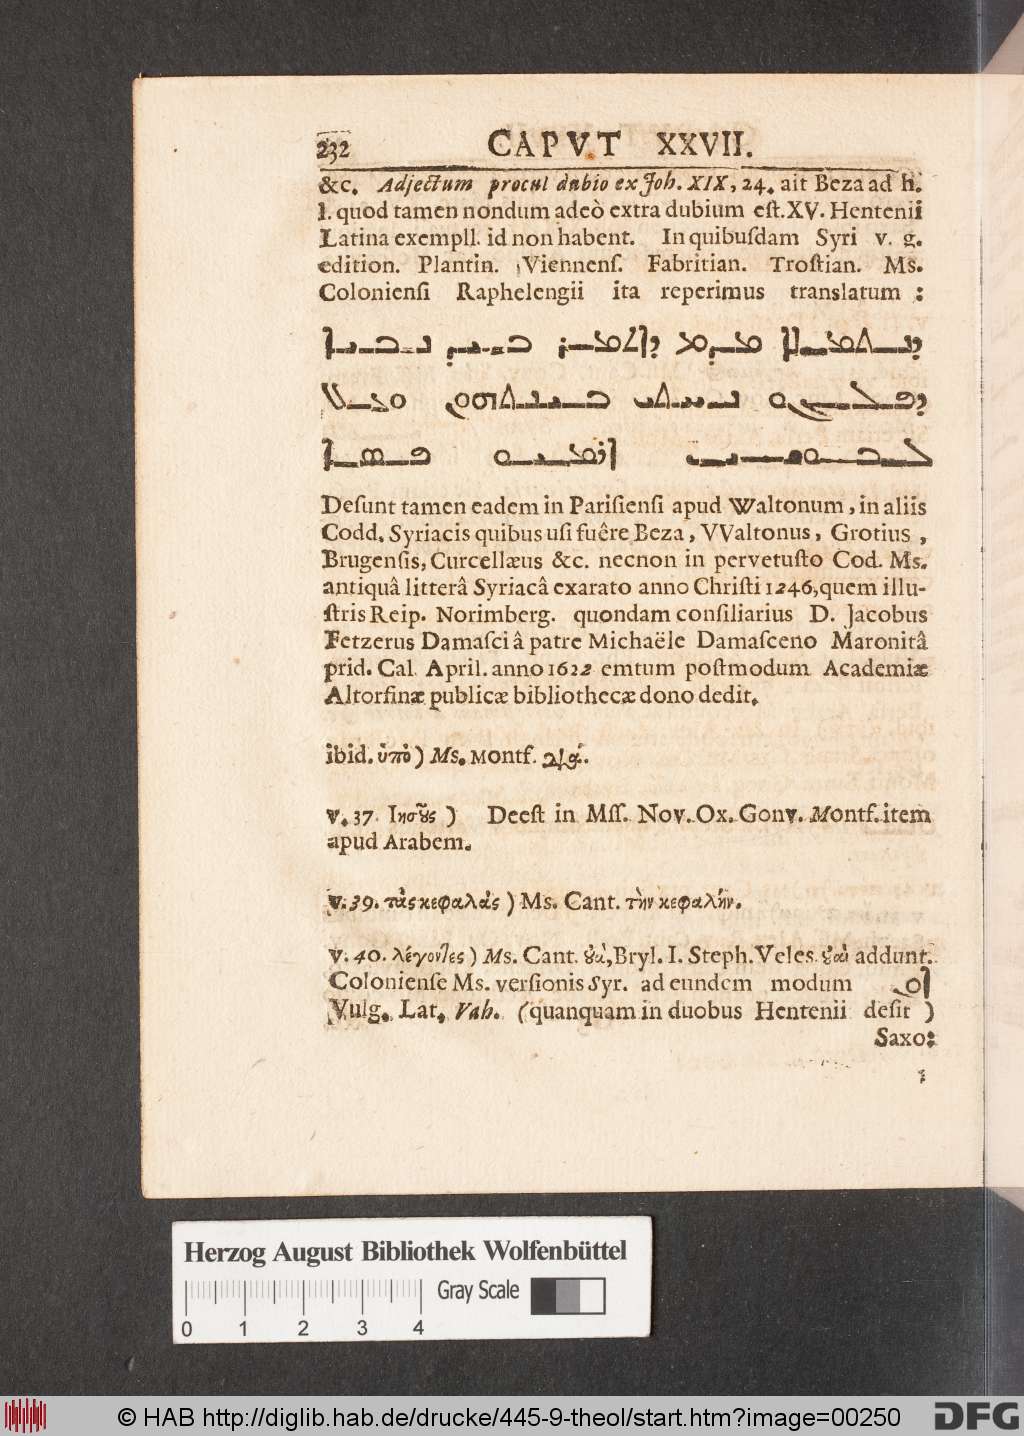 232 CAPVT XXVII.
&c. Adjectum procul dubio ex Joh. XIX, 24. ait Beza ad h.
l. quod tamen nondum adeò extra dubium est. XV. Hentenii
Latina exempll. id non habent. In quibusdam Syri v. g.
edition. Plantin. Viennens. Fabritian. Trostian. Ms.
Coloniensi Raphelengii ita reperimus translatum :
ܕܢܬܡܠܐ ܡܕܡ ܕܐܬܐܡܪ ܒܝܕ ܢܒܝܐ
ܕܦܠܓܘ ܢܚܬܝ ܒܝܢܬܗܘܢ ܘܥܠ
ܠܒܘܫܝ ܐܪܡܝܘ ܦܣܐ
Desunt tamen eadem in Parisiensi apud Waltonum, in aliis
Codd. Syriacis quibus usi fuêre Beza, VValtonus, Grotius,
Brugensis, Curcellæus &c. necnon in pervetusto Cod. Ms.
antiquâ litterâ Syriacâ exarato anno Christi 1246, quem illu-
stris Reip. Norimberg. quondam consiliarius D. Jacobus
Fetzerus Damasci â patre Michaële Damasceno Maronitâ
prid. Cal. April. anno 1622 emtum postmodum Academiæ
Altorfinæ publicæ bibliothecæ dono dedit.
ibid. ὑπὸ) Ms. Montf. διὰ.
v. 37. Ιησοῦς ) Deest in Mss. Nov. Ox. Gonv. Montf. item
apud Arabem.
v. 39. τὰς κεφαλὰς ) Ms. Cant. τὴν κεφαλήν.
v. 40. λέγοντες ) Ms. Cant. οὐὰ, Bryl. I. Steph. Veles. οὐαὶ addunt.
Coloniense Ms. versionis Syr. ad eundem modum ܐܘ
Vulg. Lat. Vah. (quanquam in duobus Hentenii desit )
Saxo:
Herzog August Bibliothek Wolfenbüttel
Gray Scale
0 1 2 3 4
© HAB http://diglib.hab.de/drucke/445-9-theol/start.htm?image=00250 DFG